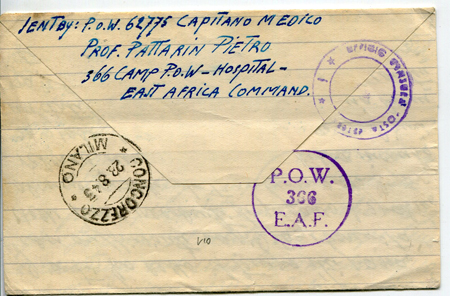 SENT BY: P.O.W. 62775 CAPITANO MEDICO
PROF. PATTARIN PIETRO
366 CAMP P.O.W - HOSPITAL -
EAST AFRICA COMMAND.
UFFICIO
POSTA ESTERA
CONCOREZZO
* MILANO *
23.8.45
P.O.W.
366
E.A.F.
V10